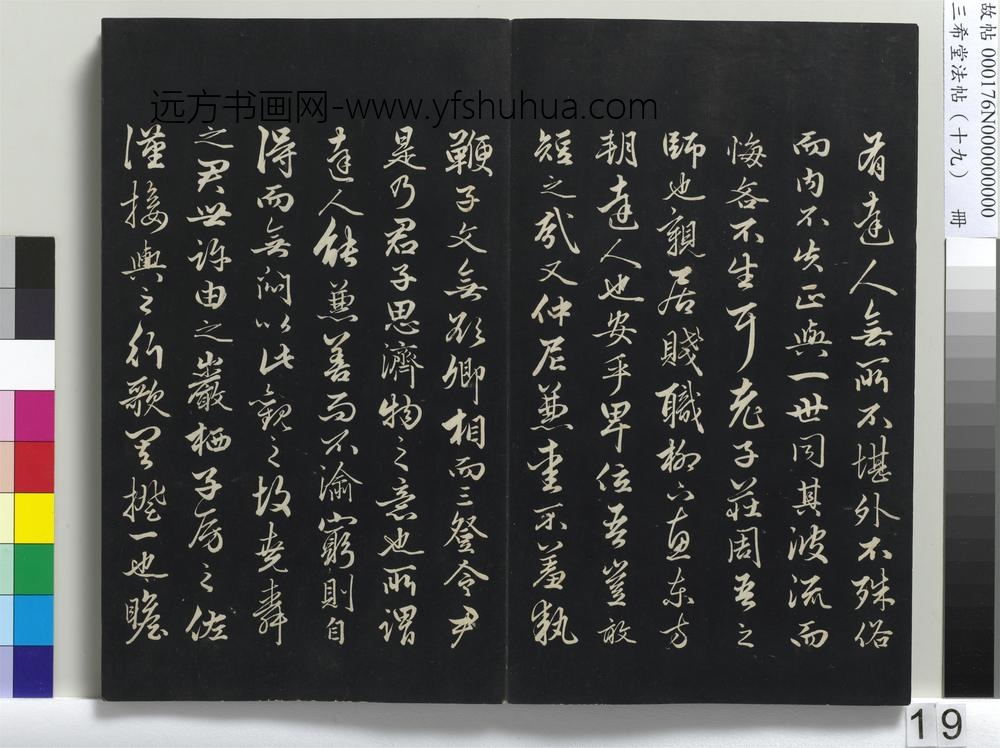 有達人無所不堪外不殊俗
而内不失正與一世同其波流而
悔吝不生耳老子莊周吾之
師也親居賤職柳下惠東方
朔達人也安乎卑位吾豈敢
短之哉又仲尼兼愛不羞執
鞭子文無欲卿相而三登令尹
是乃君子思濟物之意也所謂
達人能兼善而不渝窮則自
得而無悶以此觀之故堯舜
之君世許由之巖栖子房之佐
漢接輿之行歌其揆一也瞻
远方书画网-www.yfshuhua.com
故帖 000176N000000000
三希堂法帖（十九） 冊
19